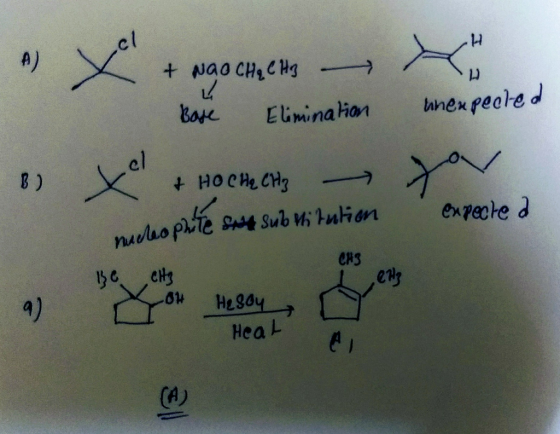 A) Cl + NaOCH2CH3 → H H
Base Elimination unexpected
B) Cl + HOCH2CH3 → O
nucleophile substitution expected
9) H3C CH3 OH H2SO4 Heat → CH3 CH3
(A)